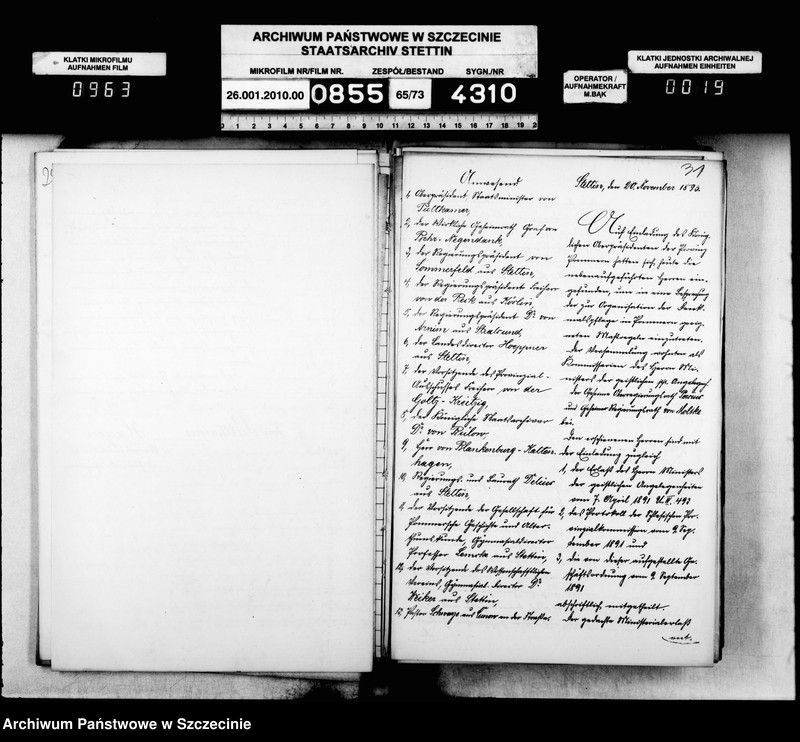 ARCHIWUM PAŃSTWOWE W SZCZECINIE
STAATSARCHIV STETTIN
KLATKI MIKROFILMU
AUFNAHMEN FILM
0963
MIKROFILM NR/FILM NR. ZESPÓŁ/BESTAND SYGN./NR
26.001.2010.00 0855 65/73 4310
OPERATOR /
AUFNAHMEKRAFT
M.BĄK
KLATKI JEDNOSTKI ARCHIWALNEJ
AUFNAHMEN EINHEITEN
0019
0 1 2 3 4 5 6 7 8 9 10 11 12 13 14 15 16 17 18 19 20
31
Anwesend
1, Oberpräsident Staatsminister von
Puttkamer,
2, der Wirkliche Geheimrath Graf von
Behr-Negendank,
3, der Regierungspräsident von
Sommerfeld aus Stettin,
4, der Regierungspräsident Freiherr
von der Reck aus Köslin,
5, der Regierungspräsident Dr. von
Arnim aus Stralsund,
6, der Landesdirector Hoeppner
aus Stettin,
7, der Vorsitzende des Provinzial-
Ausschusses Freiherr von der
Goltz-Kreitzig,
8, der Königliche Staatsarchivar
Dr. von Bülow,
9, Herr von Blankenburg-Kalten-
hagen,
10, Regierungs- und Baurath Delius
aus Stettin,
11, der Vorsitzende der Gesellschaft für
Pommersche Geschichte und Alter-
thumskunde, Gymnasialdirector
Professor Lemcke aus Stettin,
12, der Vorsitzende des Wissenschaftlichen
Vereins, Gymnasial-Director Dr.
Weiker aus Stettin,
13, Pastor aus an der Straße.
Stettin, den 20. November 1893.
Auf Einladung des König-
lichen Oberpräsidenten der Provinz
Pommern hatten sich heute die
nebenaufgeführten Herren ein-
gefunden, um in eine Besprechung
der zur Organisation der Denk-
malspflege in Pommern geeig-
neten Maßregeln einzutreten.
Der Versammlung wohnten als
Kommissarien des Herrn Mi-
nisters der geistlichen pp. Angelegenh.
der Geheime Oberregierungsrath Persius
und Geheime Regierungsrath von Moltke
bei.
Den erschienenen Herren sind mit
der Einladung zugleich
1, der Erlaß des Herrn Ministers
der geistlichen Angelegenheiten
vom 7. April 1891
2, das Protokoll der Schlesischen Pro-
vinzialkommission vom 9. Sep-
tember 1891 und
3, die von dieser aufgestellte Ge-
schäftsordnung vom 9. September
1891
abschriftlich mitgetheilt.
Der gedachte Ministerialerlaß
Archiwum Państwowe w Szczecinie